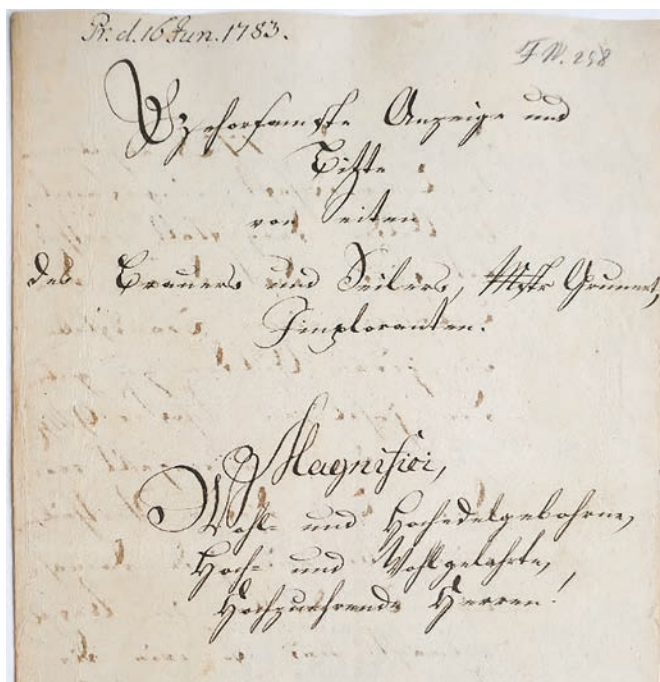 Pr: d. 16 Jun. 1783.
F N. 258
Gehorsamste Anzeige und
Bitte
von Seiten
des Brauers und Seilers, Mstr Grunert,
Imploranten.
Magnifici,
Wohl- und Hochedelgebohrne,
Hoch- und Wohlgelahrte,
Hochzuehrende Herren!